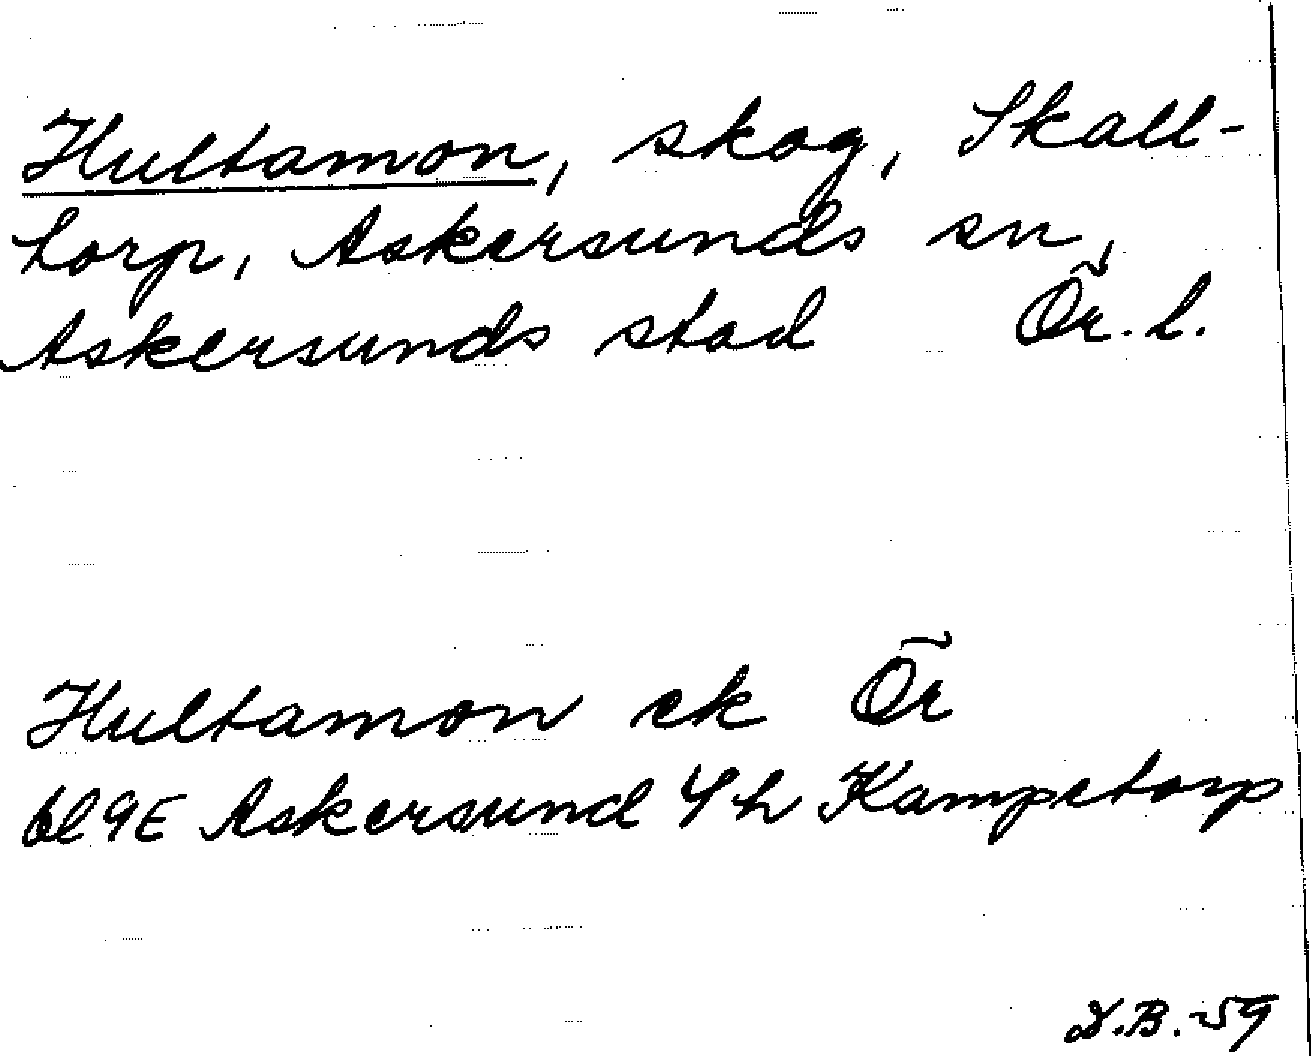 Hultamon, skog, Skall-
torp, Askersunds sn,
Askersunds stad Ör. l.
Hultamon ek Ör
bl 9E Askersund 4h Kampetorp
D.B.-59